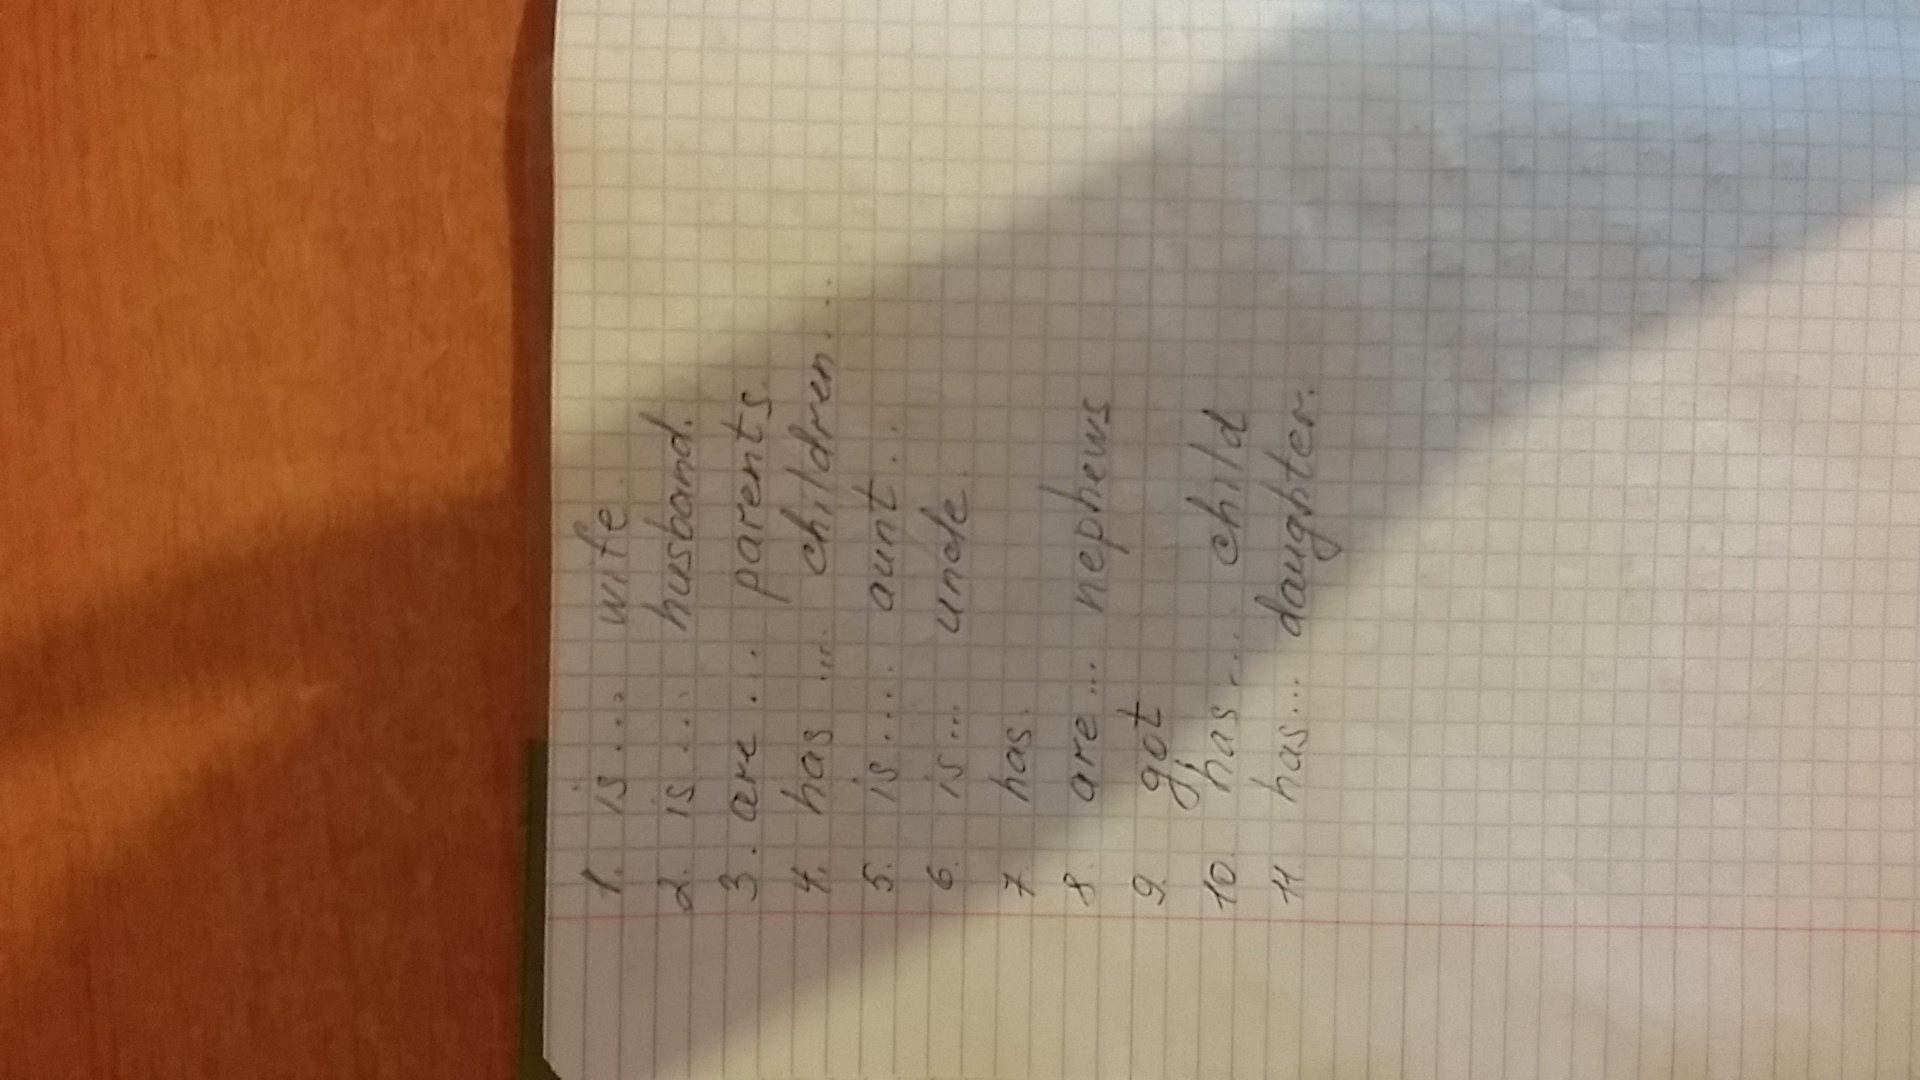 1. is... wife.
2. is.... husband.
3. are... parents.
4. has ... children...
5. is.... aunt...
6. is... uncle.
7. has.
8. are... nephews
9. got
10. has... child
11. has... daughter.